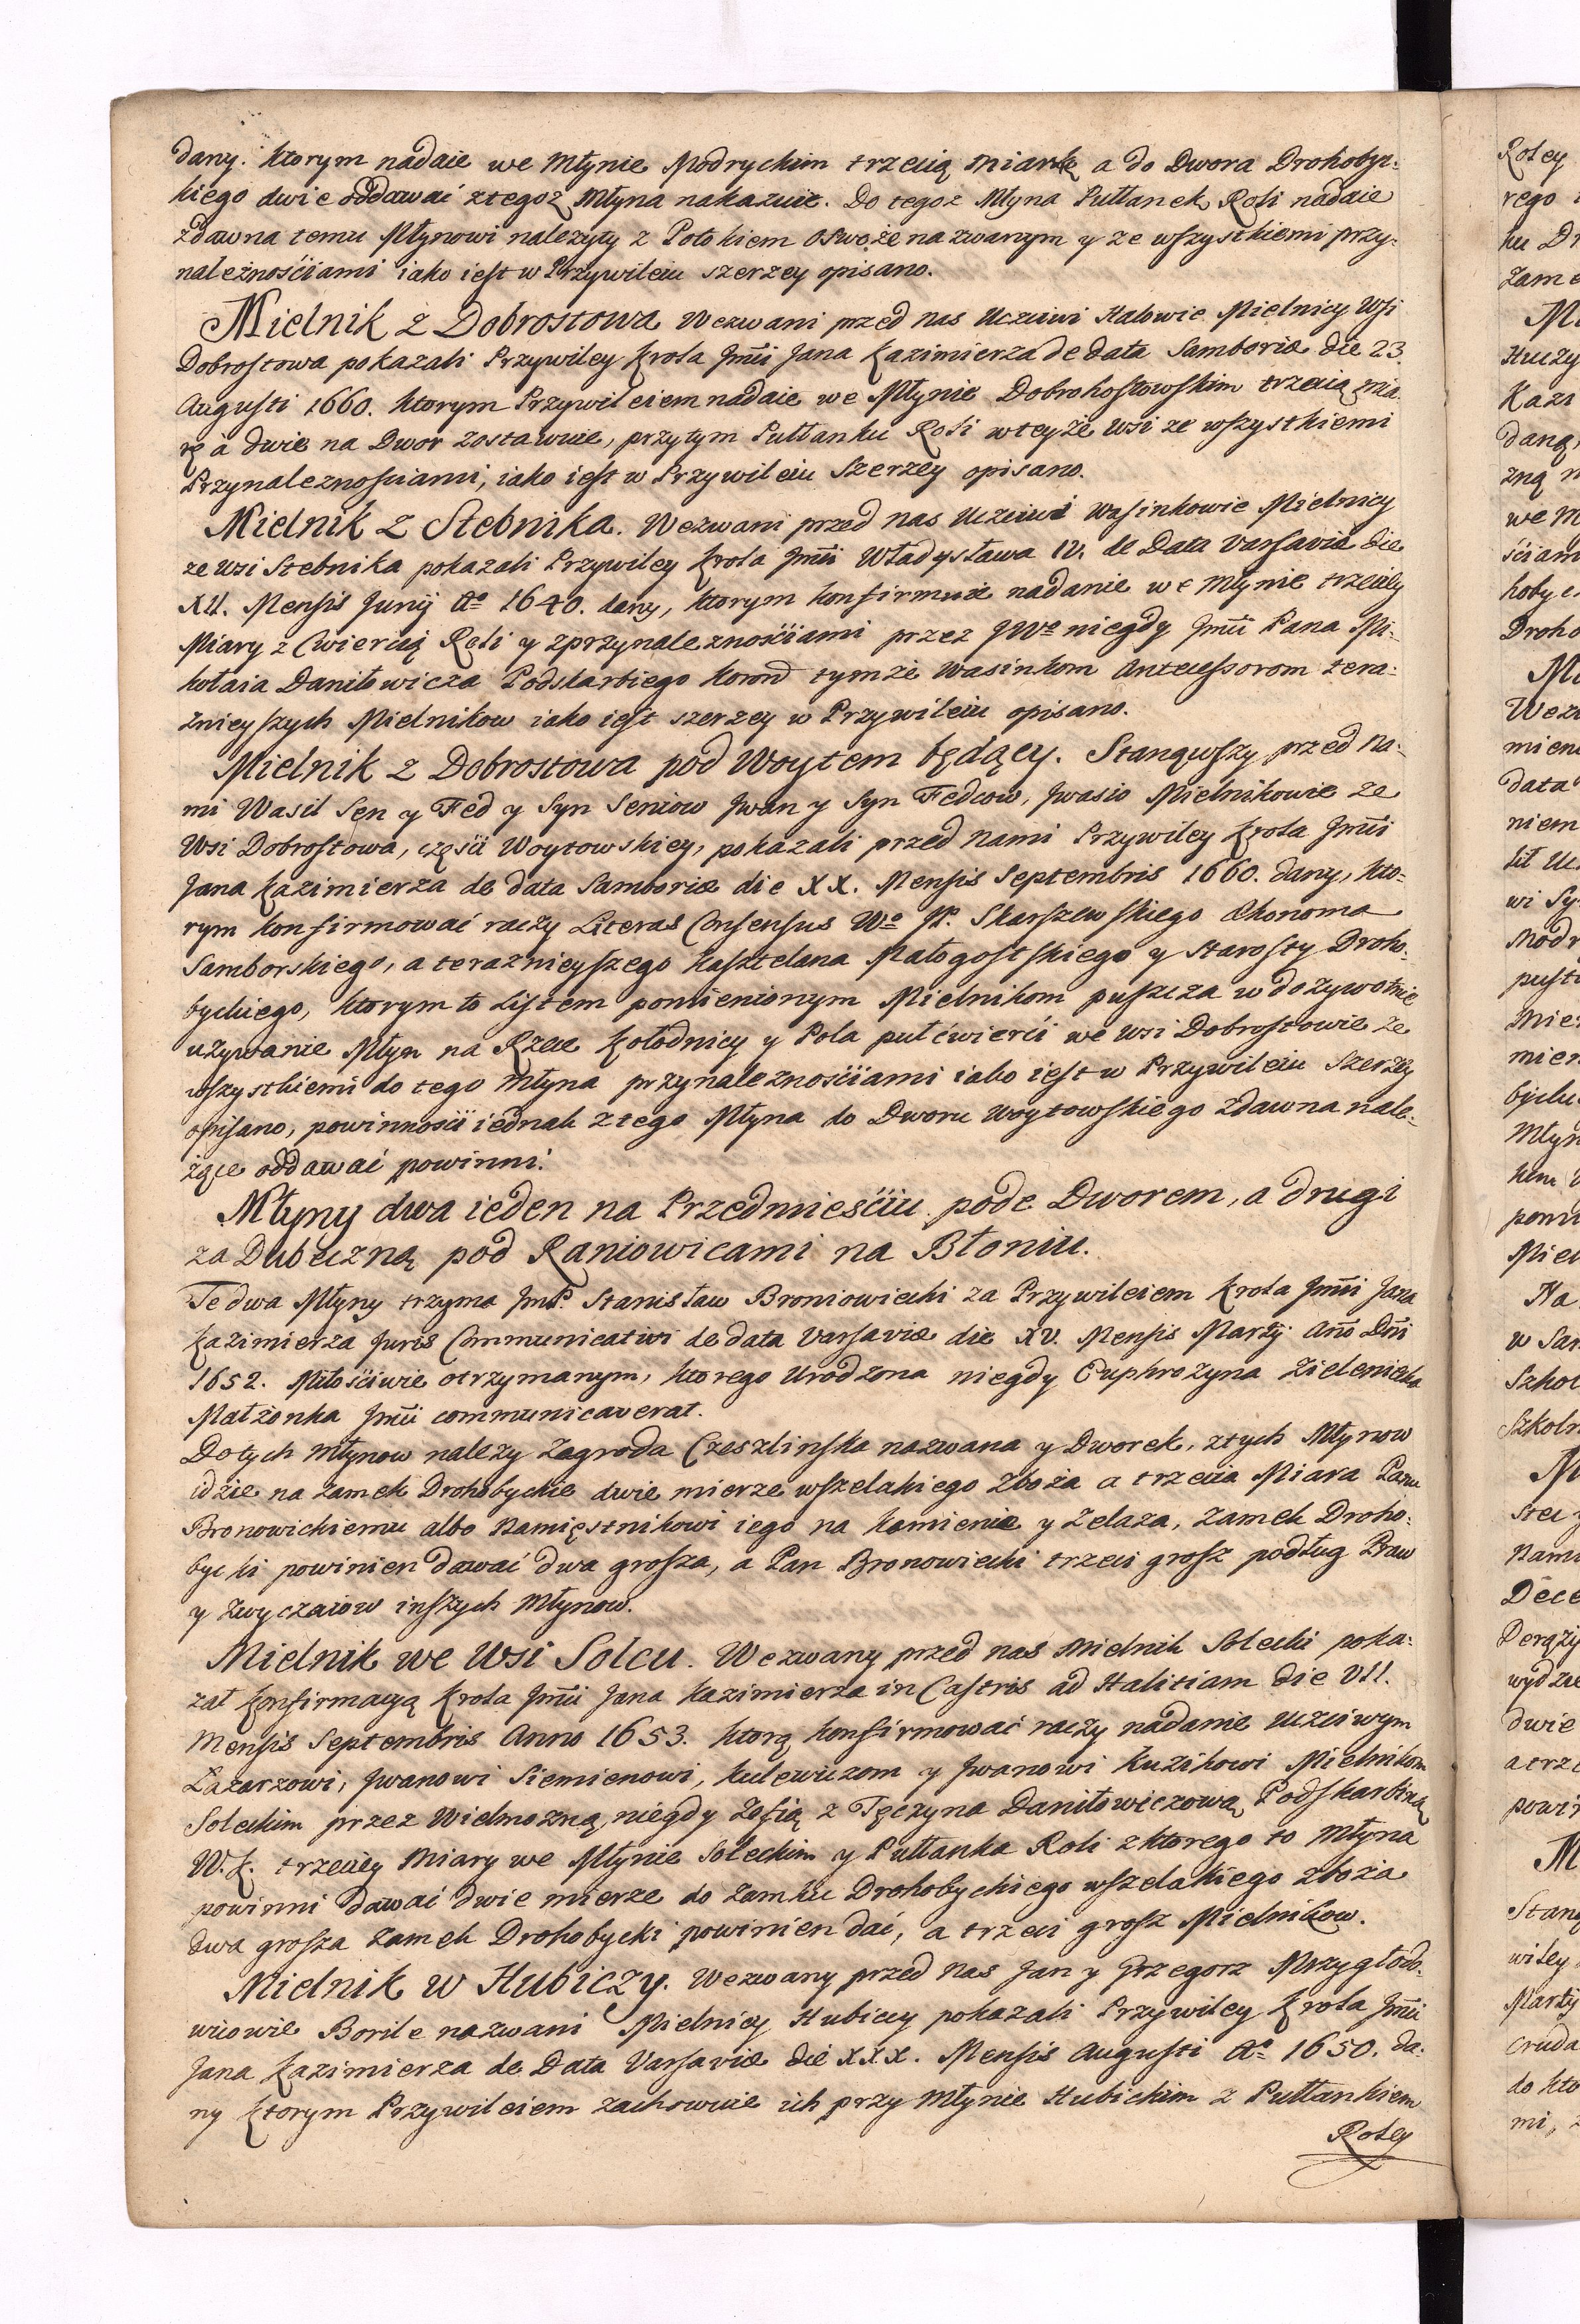 dany. ktorym nadaie we Młynie Modryckim trzecią miarkę a do Dwora Drohobyc-
kiego dwie oddawać z tegoż Młyna nakazuie. Do tegoz Młyna Pułłanek Roli nadaie
zdawna temu Młynowi nalezyty z Potokiem oswoże nazwanym y ze wszystkiemi przy-
należnościami iako iest w Przywileiu szerzey opisano.
Mielnik z Dobrostowa Wezwani przed nas Uczciwi Halowie Mielnicy Wsi
Dobrostowa pokazali Przywiley Krola Jmći Jana Kazimierza de data Samboriæ die 23
Augusti 1660. ktorym Przywileiem nadaie we Młynie Dobrohostowskim trzecią mia-
rę a dwie na Dwor zostawuie, przytym Pułłanku Roli w teyże wsi ze wszystkiemi
Przynaleznosciami, iako iest w Przywileiu Szerzey opisano.
Mielnik z Stebnika. Wezwani przed nas Uczciwi Wasinkowie Mielnicy
ze wsi Stebnika pokazali Przywiley Krola Jmći Władysława IV. de Data Varsaviæ die
XII. Mensis Junij Aº 1640. dany, ktorym konfirmuie nadanie we Młynie trzeciey
Miary z Cwiercią Roli y z przynaleznościami przez JWº niegdy Jmći Pana Mi-
kołaia Daniłowicza Podskarbiego Koron tymże Wasinkom Antecessorom tera-
znieyszych Mielnikow iako iest szerzey w Przywileiu opisano.
Mielnik z Dobrostowa pod Woytem będący. Stanąwszy przed na-
mi Wasil Sen y Fed y Syn Seniow Jwan y Syn Fedcow, Jwasio Mielnikowie ze
Wsi Dobrostowa, częsći Woytowskiey, pokazali przed nami Przywiley Krola Jmći
Jana Kazimierza de data Samboriæ die XX. Mensis Septembris 1660. dany, kto-
rym konfirmować raczy Literas Consensus Wº JP. Skarszewskiego Ekonoma
Samborskiego, a teraznieyszego Kasztelana Małogostskiego y Starosty Droho-
byckiego, ktorym to Listem pomienionym Mielnikom puszcza w dozywotnie
używanie Młyn na Rzece Kołodnicy y Pola puł ćwierći we wsi Dobrostowie ze
wszystkiemi do tego młyna przynaleznościami iako iest w Przywileiu Szerzey
opisano, powinnosći iednak z tego Młyna do Dworu woytowskiego zdawna nale-
żące oddawać powinni.
Młyny dwa ieden na Przedmiesćiu pode Dworem, a drugi
za Dubeczną pod Raniowicami na Błoniu.
Te dwa Młyny trzyma JmP. Stanisław Broniowiecki za Przywileiem Krola Jmći Jana
Kazimierza Juris Communicativi de data Varsaviæ die XV. Mensis Martij Anno Dni
1652. Miłościwie otrzymanym, ktorego Urodzona niegdy Euphrozyna Zielenicka
Małżonka Jmći communicaverat.
Do tych młynow nalezy Zagroda Czeszlinska nazwana y Dworek, z tych Młynow
idzie na Zamek Drohobyckie dwie mierze wszelakiego zboża a trzecia Miara Panu
Bronowickiemu albo Namięstnikowi iego na Kamienie y Zelaza, Zamek Droho-
bycki powinien dawać dwa grosza, a Pan Bronowiecki trzeci grosz podług Praw
y zwyczaiow inszych Młynow.
Mielnik we Wsi Solcu. Wezwany przed nas mielnik Solecki poka-
zał konfirmacyą Krola Jmći Jana Kazimierza in Castris ad Halitiam die VII.
Mensis Septembris Anno 1653. ktorą konfirmować raczy nadanie uczciwym
Łazarzowi, Jwanowi Siemienowi, Kulewiczom y Jwanowi Kuzikowi Mielnikom
Soleckim przez Wielmozną niegdy Zofią z Tęczyna Daniłowiczową Podskarbiną
W. K. trzeciey miary we Młynie Soleckim y Pułłanka Roli z ktorego to młyna
powinni dawać dwie mierze do Zamku Drohobyckiego wszelakiego zboża
dwa grosza Zamek Drohobycki powinien dać, a trzeci grosz Mielnikow.
Mielnik w Hubiczy. Wezwany przed nas Jan y Grzegorz Mrzygłodo-
wicowie Borile nazwani Mielnicy Hubiccy pokazali Przywiley Krola Jmći
Jana Kazimierza de Data Varsaviæ die XXX. Mensis Augusti Aº 1650. da-
ny Ktorym Przywileiem zachowuie ich przy młynie Hubickim z Pułłankiem
Roley